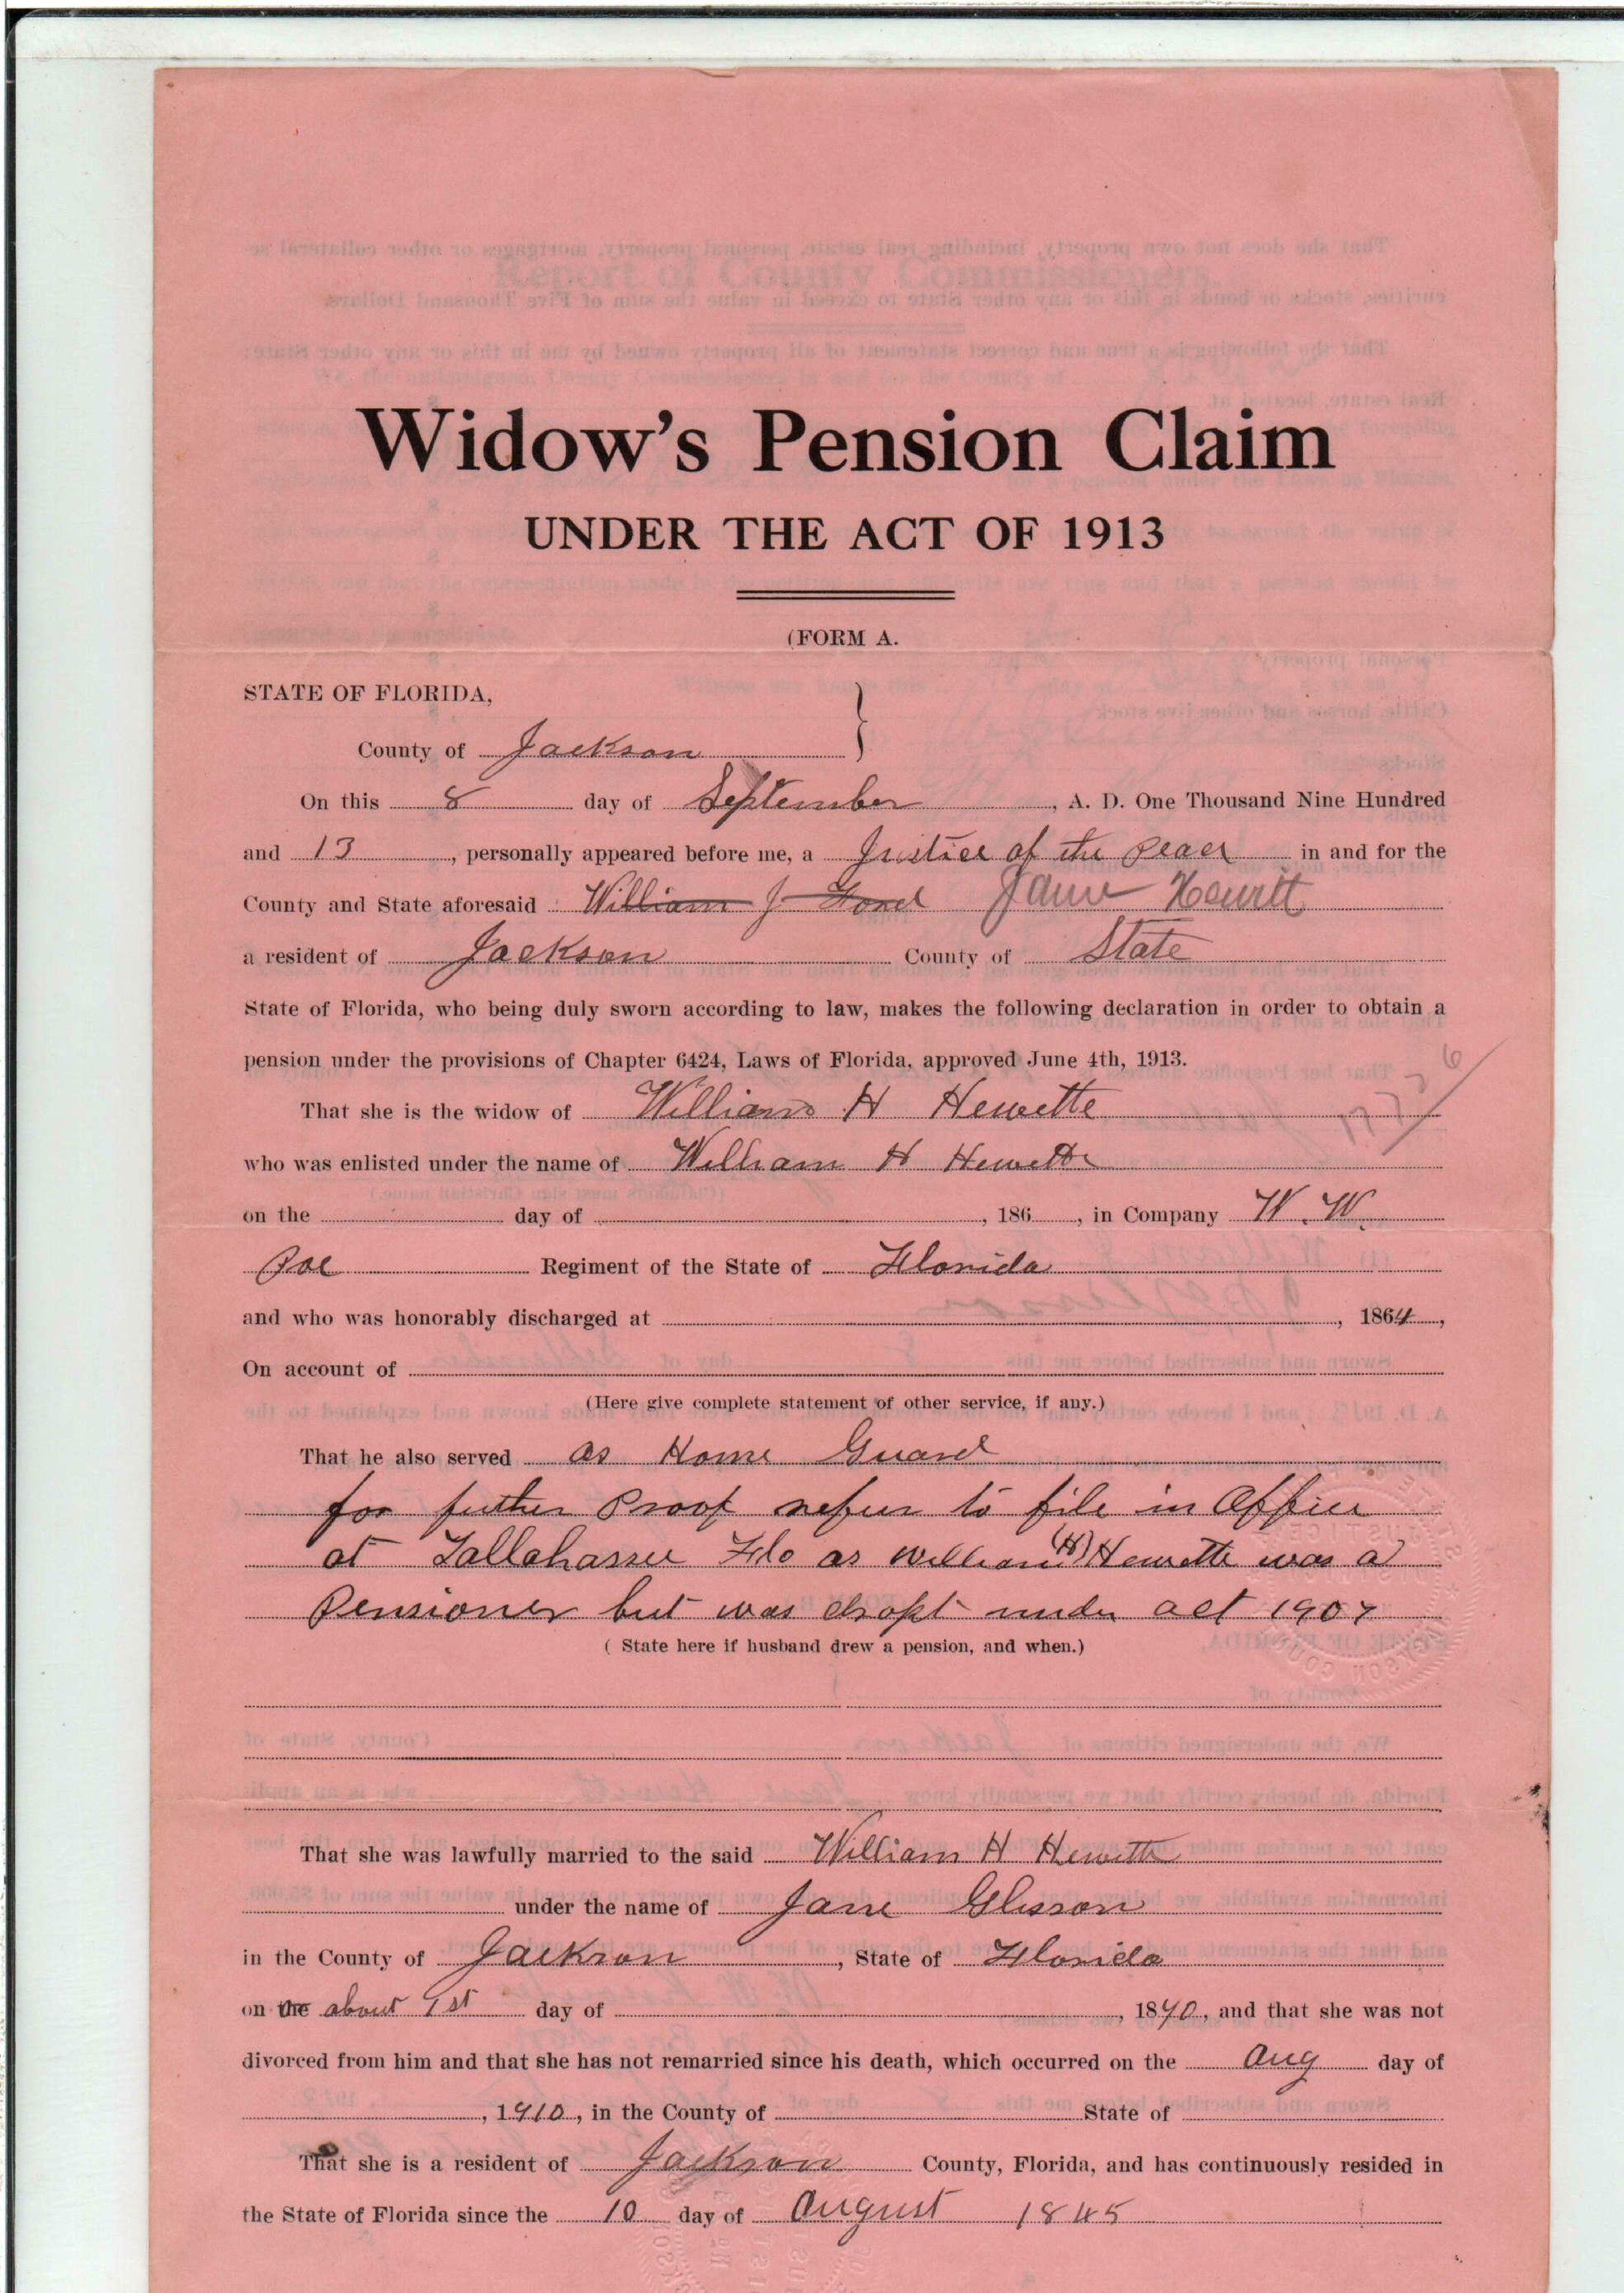 Widow's Pension Claim
UNDER THE ACT OF 1913
(FORM A.
STATE OF FLORIDA,
County of Jackson
On this 8 day of September, A. D. One Thousand Nine Hundred
and 13, personally appeared before me, a Justice of the Peace in and for the
County and State aforesaid William J Ford Jane Hewitt
a resident of Jackson County of State
State of Florida, who being duly sworn according to law, makes the following declaration in order to obtain a
pension under the provisions of Chapter 6424, Laws of Florida, approved June 4th, 1913.
That she is the widow of William H Hewette
who was enlisted under the name of William H Hewette
on the day of , 186 , in Company W. W.
Poe Regiment of the State of Florida
and who was honorably discharged at , 1864,
On account of
(Here give complete statement of other service, if any.)
That he also served as Home Guard
for futher Proof refur to file in Office
at Tallahassee Fla as William (H) Hewette was a
Pensioner but was dropt under act 1907
( State here if husband drew a pension, and when.)
That she was lawfully married to the said William H Hewette
under the name of Jane Glisson
in the County of Jackson, State of Florida
on the about 1st day of , 1870, and that she was not
divorced from him and that she has not remarried since his death, which occurred on the Aug day of
, 1910, in the County of State of
That she is a resident of Jackson County, Florida, and has continuously resided in
the State of Florida since the 10 day of August 1845